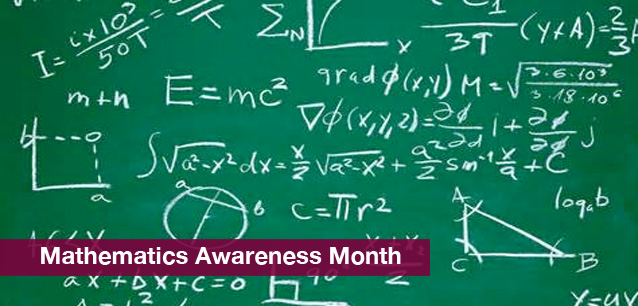 I = i×10³ / 50T
Σ N
x
3T
(y+A) = 2/3
m+n
E=mc²
grad φ(x,y) M = √(3·6·10³ / 3·18·10⁶)
∇φ(x,y,z) = ∂φ i + ∂φ j
b
a
∫√a²-x² dx = x/2 √a²-x² + a²/2 sin⁻¹ x/a + C
a
b
C=πr²
A
C
B
logₐb
Mathematics Awareness Month
ax+bx+c=0
90°
2